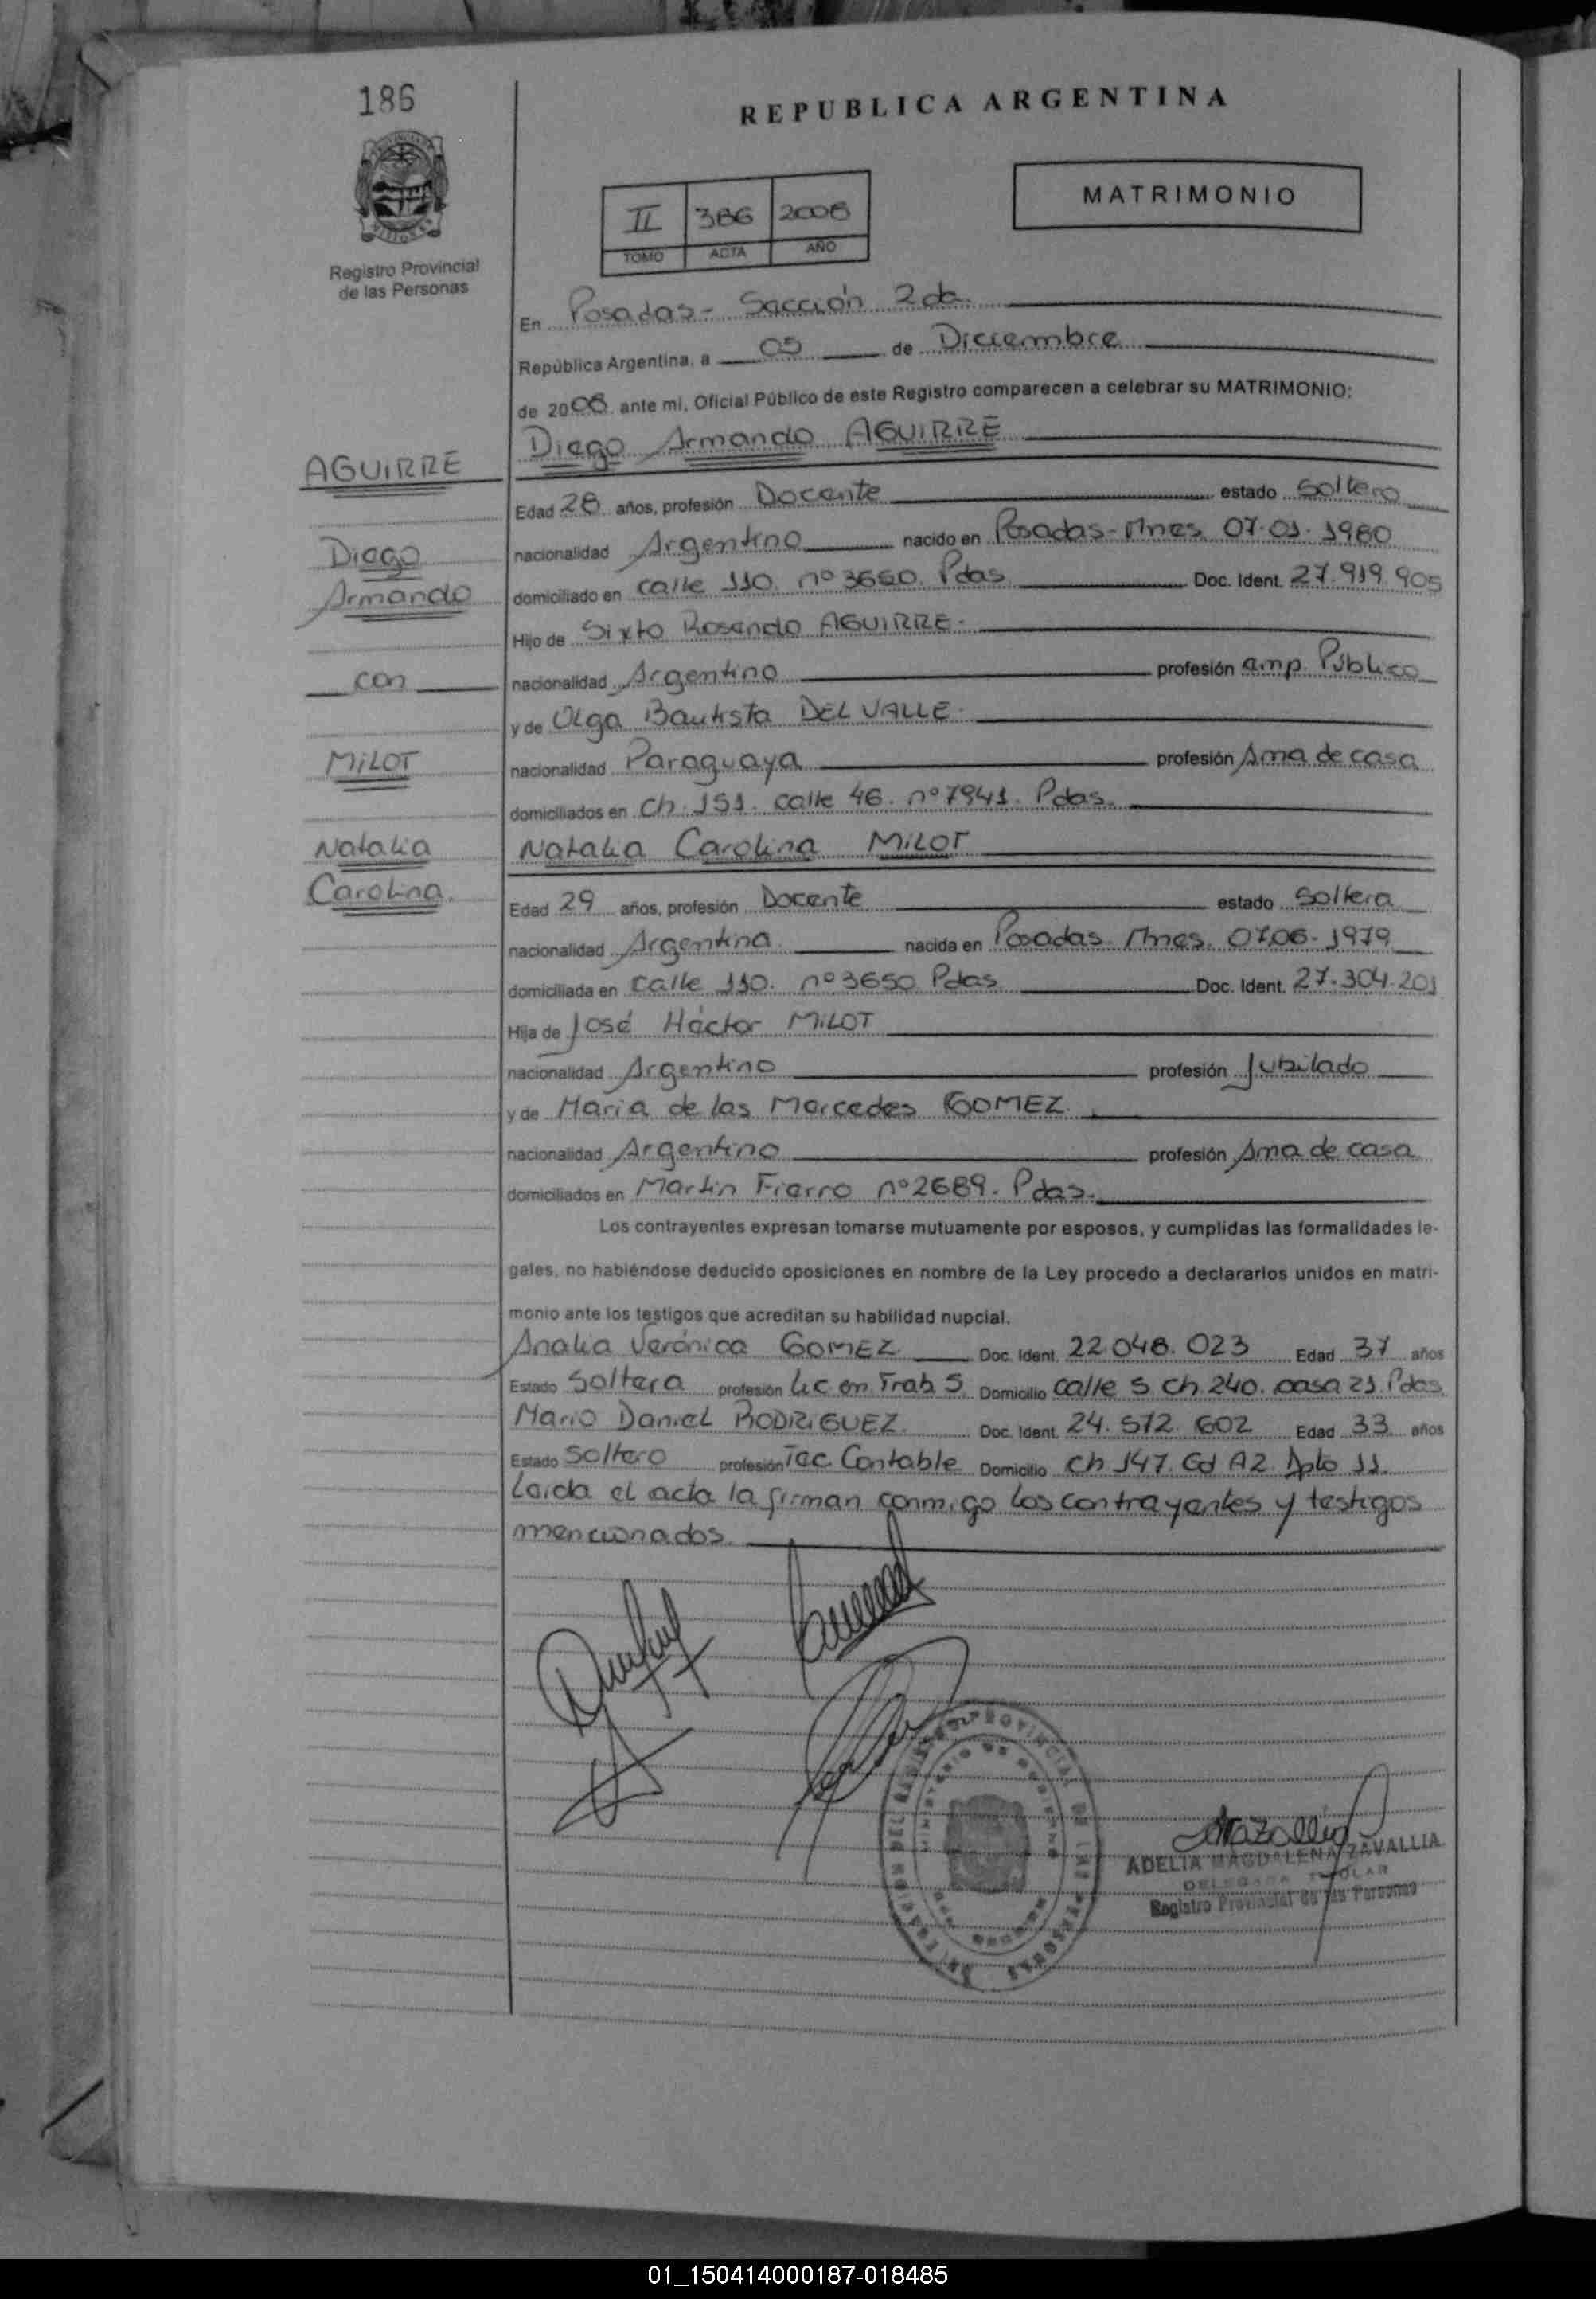 186
REPUBLICA ARGENTINA
MATRIMONIO
II 386 2008
TOMO ACTA AÑO
Registro Provincial
de las Personas
En Posadas - Sección 2da.
República Argentina, a 05 de Diciembre
de 2008 ante mi, Oficial Público de este Registro comparecen a celebrar su MATRIMONIO:
Diego Armando AGUIRRE
AGUIRRE
Edad 28 años, profesión Docente estado Soltero
Diego
nacionalidad Argentino nacido en Posadas - Mnes 07.01.1980
Armando
domiciliado en calle 110. nº 3650. Pdas Doc. Ident. 27.919.905
Hijo de Sixto Rosendo AGUIRRE.
con
nacionalidad Argentino profesión emp. Público
y de Olga Bautista DEL VALLE.
MILOT
nacionalidad Paraguaya profesión Ama de casa
domiciliados en Ch. 151. calle 46. nº 7941. Pdas.
Natalia
Natalia Carolina MILOT
Carolina.
Edad 29 años, profesión Docente estado Soltera
nacionalidad Argentina nacida en Posadas. Mnes. 07.06.1979
domiciliada en calle 110. nº 3650 Pdas Doc. Ident. 27.304.201
Hija de José Héctor MILOT
nacionalidad Argentino profesión Jubilado
y de Maria de las Mercedes GOMEZ.
nacionalidad Argentino profesión Ama de casa
domiciliados en Martin Fierro nº 2689. Pdas.
Los contrayentes expresan tomarse mutuamente por esposos, y cumplidas las formalidades le-
gales, no habiéndose deducido oposiciones en nombre de la Ley procedo a declararlos unidos en matri-
monio ante los testigos que acreditan su habilidad nupcial.
Analia Verónica GOMEZ Doc. Ident. 22.048.023 Edad 37 años
Estado Soltera profesión Lic en Trab S Domicilio calle 5 ch 240. casa 21. Pdas
Mario Daniel RODRIGUEZ. Doc. Ident. 24.572.602 Edad 33 años
Estado Soltero profesión Tec. Contable Domicilio Ch 147. Ed A2. Dpto 11.
Leida el acta la firman conmigo los contrayentes y testigos
mencionados.
ADELIA MAGDALENA ZAVALLIA
DELEGADA TITULAR
Registro Provincial de las Personas
01_150414000187-018485